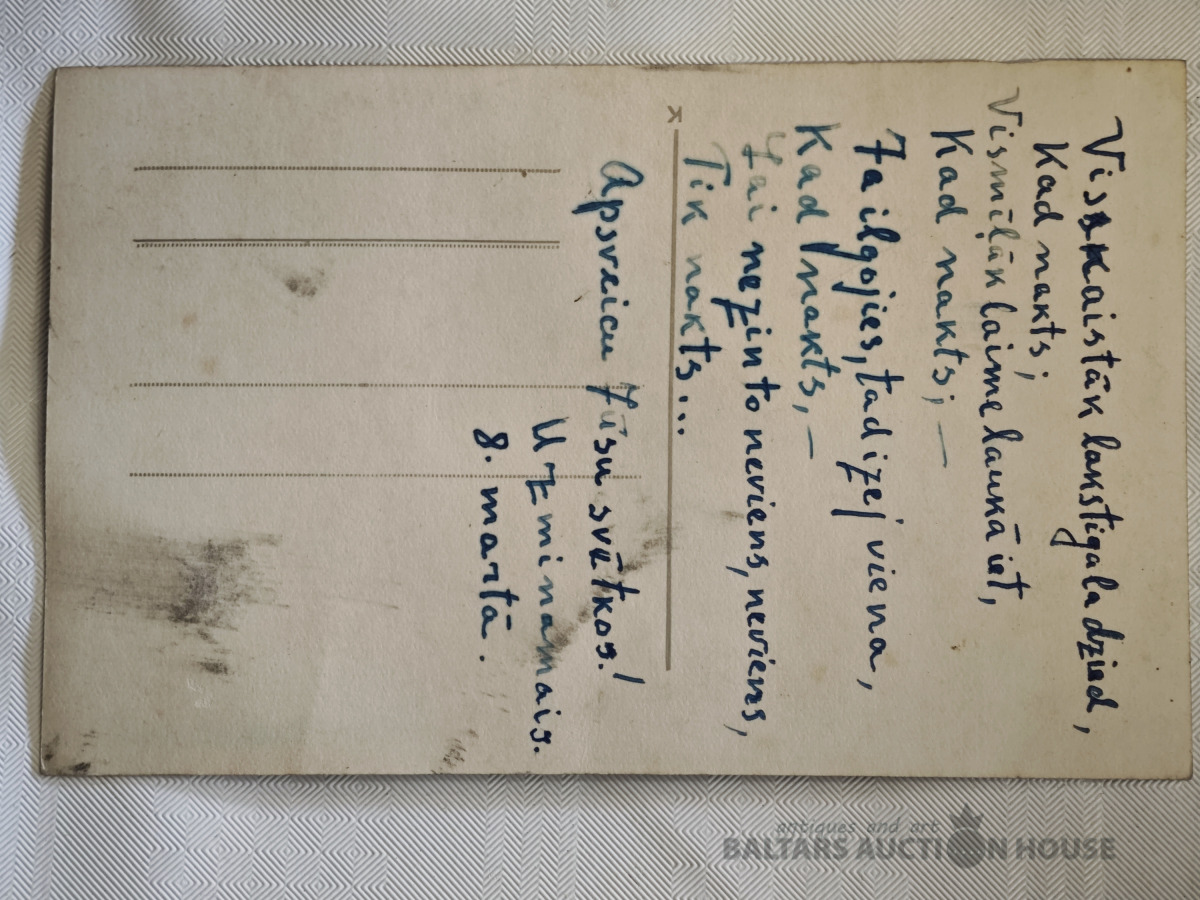 Visskaistāk lakstigala dzied,
Kad nakts;
Vismīļāk laime laukā iet,
Kad nakts; —
Ja ilgojies, tad izej viena,
Kad nakts, —
Lai nezin to neviens, neviens,
Tik nakts...
K
Apsveicu Jūsu svētkos!
Uzminamais.
8. martā.
antiques and art
BALTARS AUCTION HOUSE